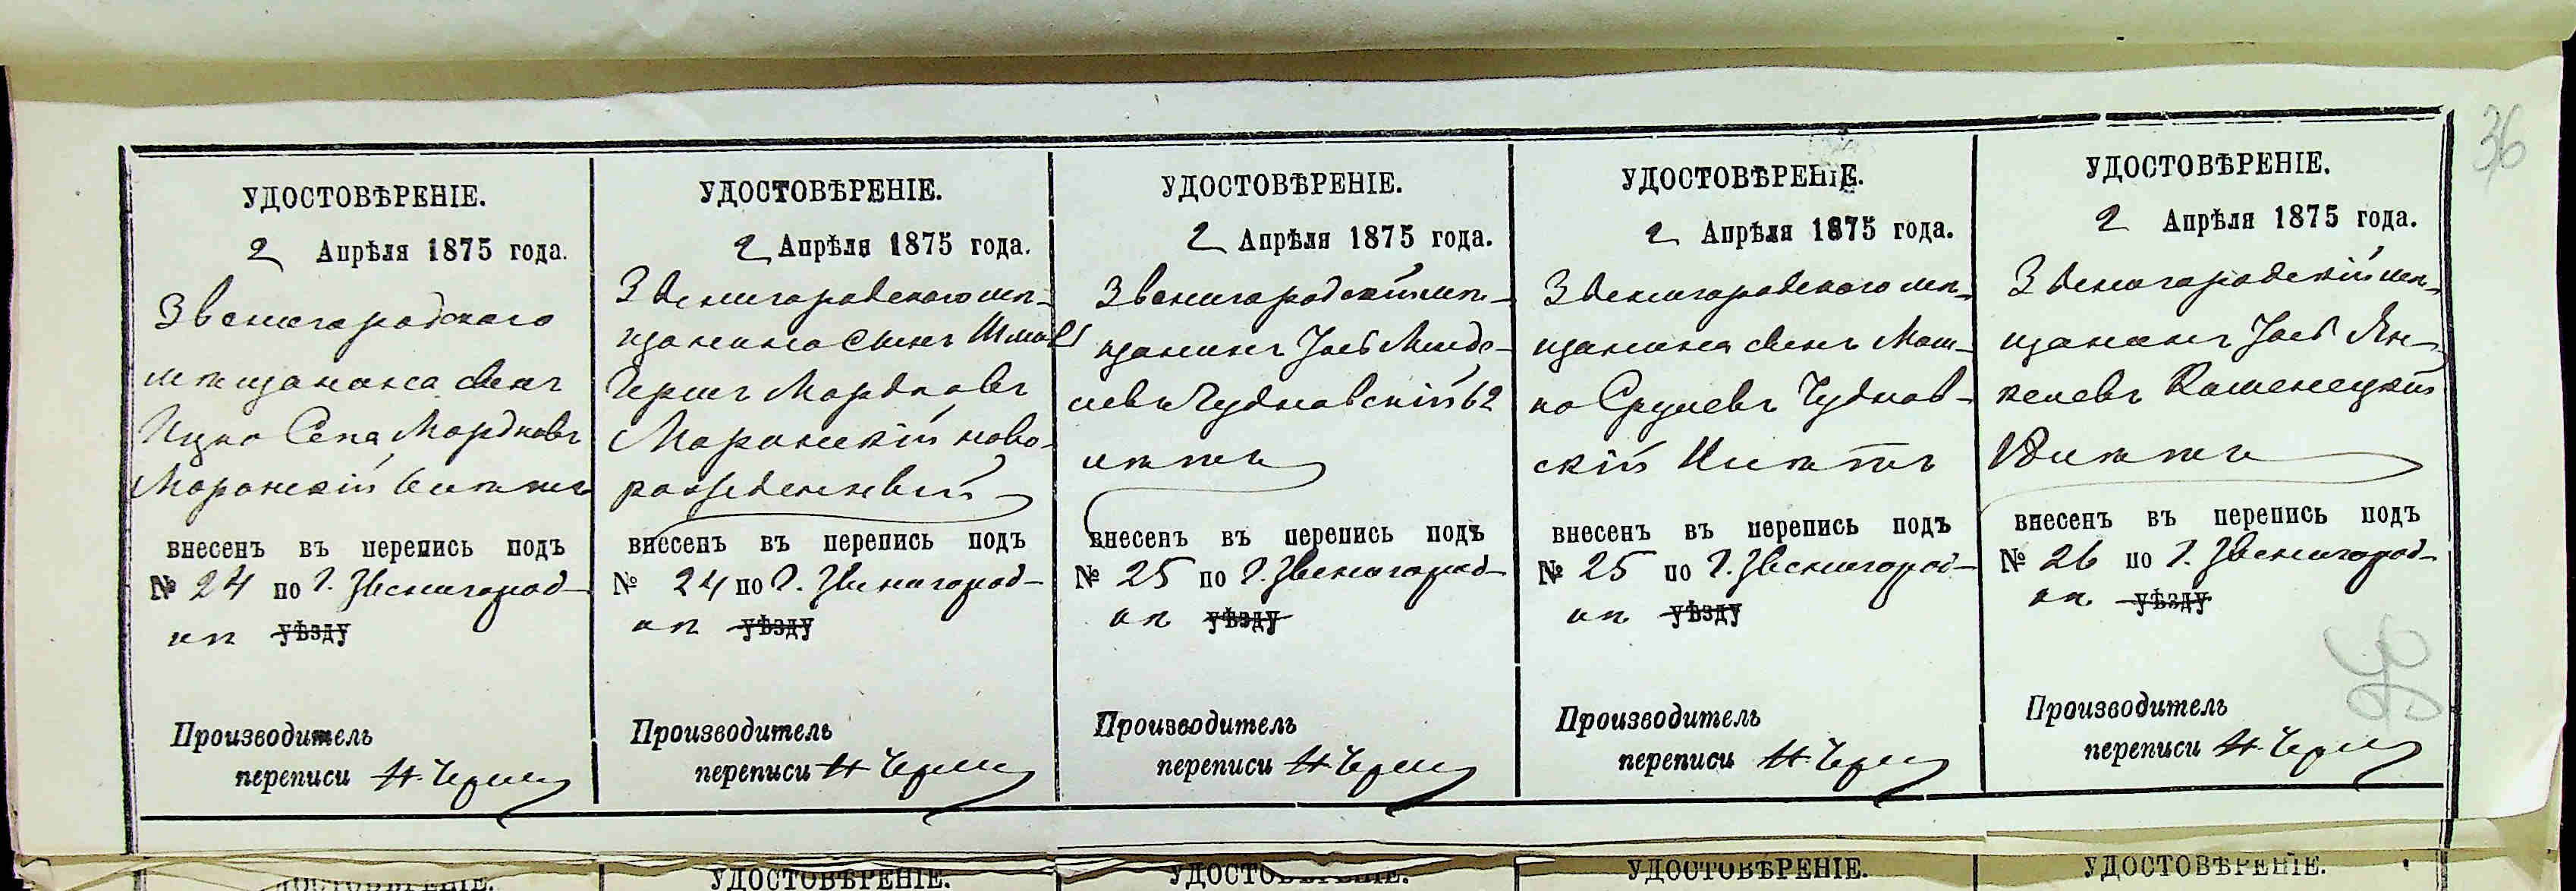 36
УДОСТОВѢРЕНІЕ.
2 Апрѣля 1875 года.
Звенигородского
мѣщанина сынъ
Ицко Сепа Мордковъ
Моронскій 6 лѣтъ
внесенъ въ перепись подъ
№ 24 по г. Звенигород-
кѣ уѣзду
Производитель
переписи Н. Черн
УДОСТОВѢРЕНІЕ.
2 Апрѣля 1875 года.
Звенигородского мѣ-
щанина сынъ Шмов
Гершъ Мордковъ
Моронскій ново-
рожденный
внесенъ въ перепись подъ
№ 24 по г. Звенигород-
кѣ уѣзду
Производитель
переписи Н. Черн
УДОСТОВѢРЕНІЕ.
2 Апрѣля 1875 года.
Звенигородскій мѣ-
щанинъ Іось Менде-
левъ Чудновскій 62
лѣтъ
внесенъ въ перепись подъ
№ 25 по г. Звенигород-
кѣ уѣзду
Производитель
переписи Н. Черн
УДОСТОВѢРЕНІЕ.
2 Апрѣля 1875 года.
Звенигородского мѣ-
щанина сынъ Мош-
ко Срулевъ Чуднов-
скій лѣтъ
внесенъ въ перепись подъ
№ 25 по г. Звенигород-
кѣ уѣзду
Производитель
переписи Н. Черн
УДОСТОВѢРЕНІЕ.
2 Апрѣля 1875 года.
Звенигородскій мѣ-
щанинъ Іось Ян-
келевъ Каменецкій
лѣтъ
внесенъ въ перепись подъ
№ 26 по г. Звенигород-
кѣ уѣзду
Производитель
переписи Н. Черн
УДОСТОВѢРЕНІЕ.
УДОСТОВѢРЕНІЕ.
УДОСТОВѢРЕНІЕ.
УДОСТОВѢРЕНІЕ.
УДОСТОВѢРЕНІЕ.